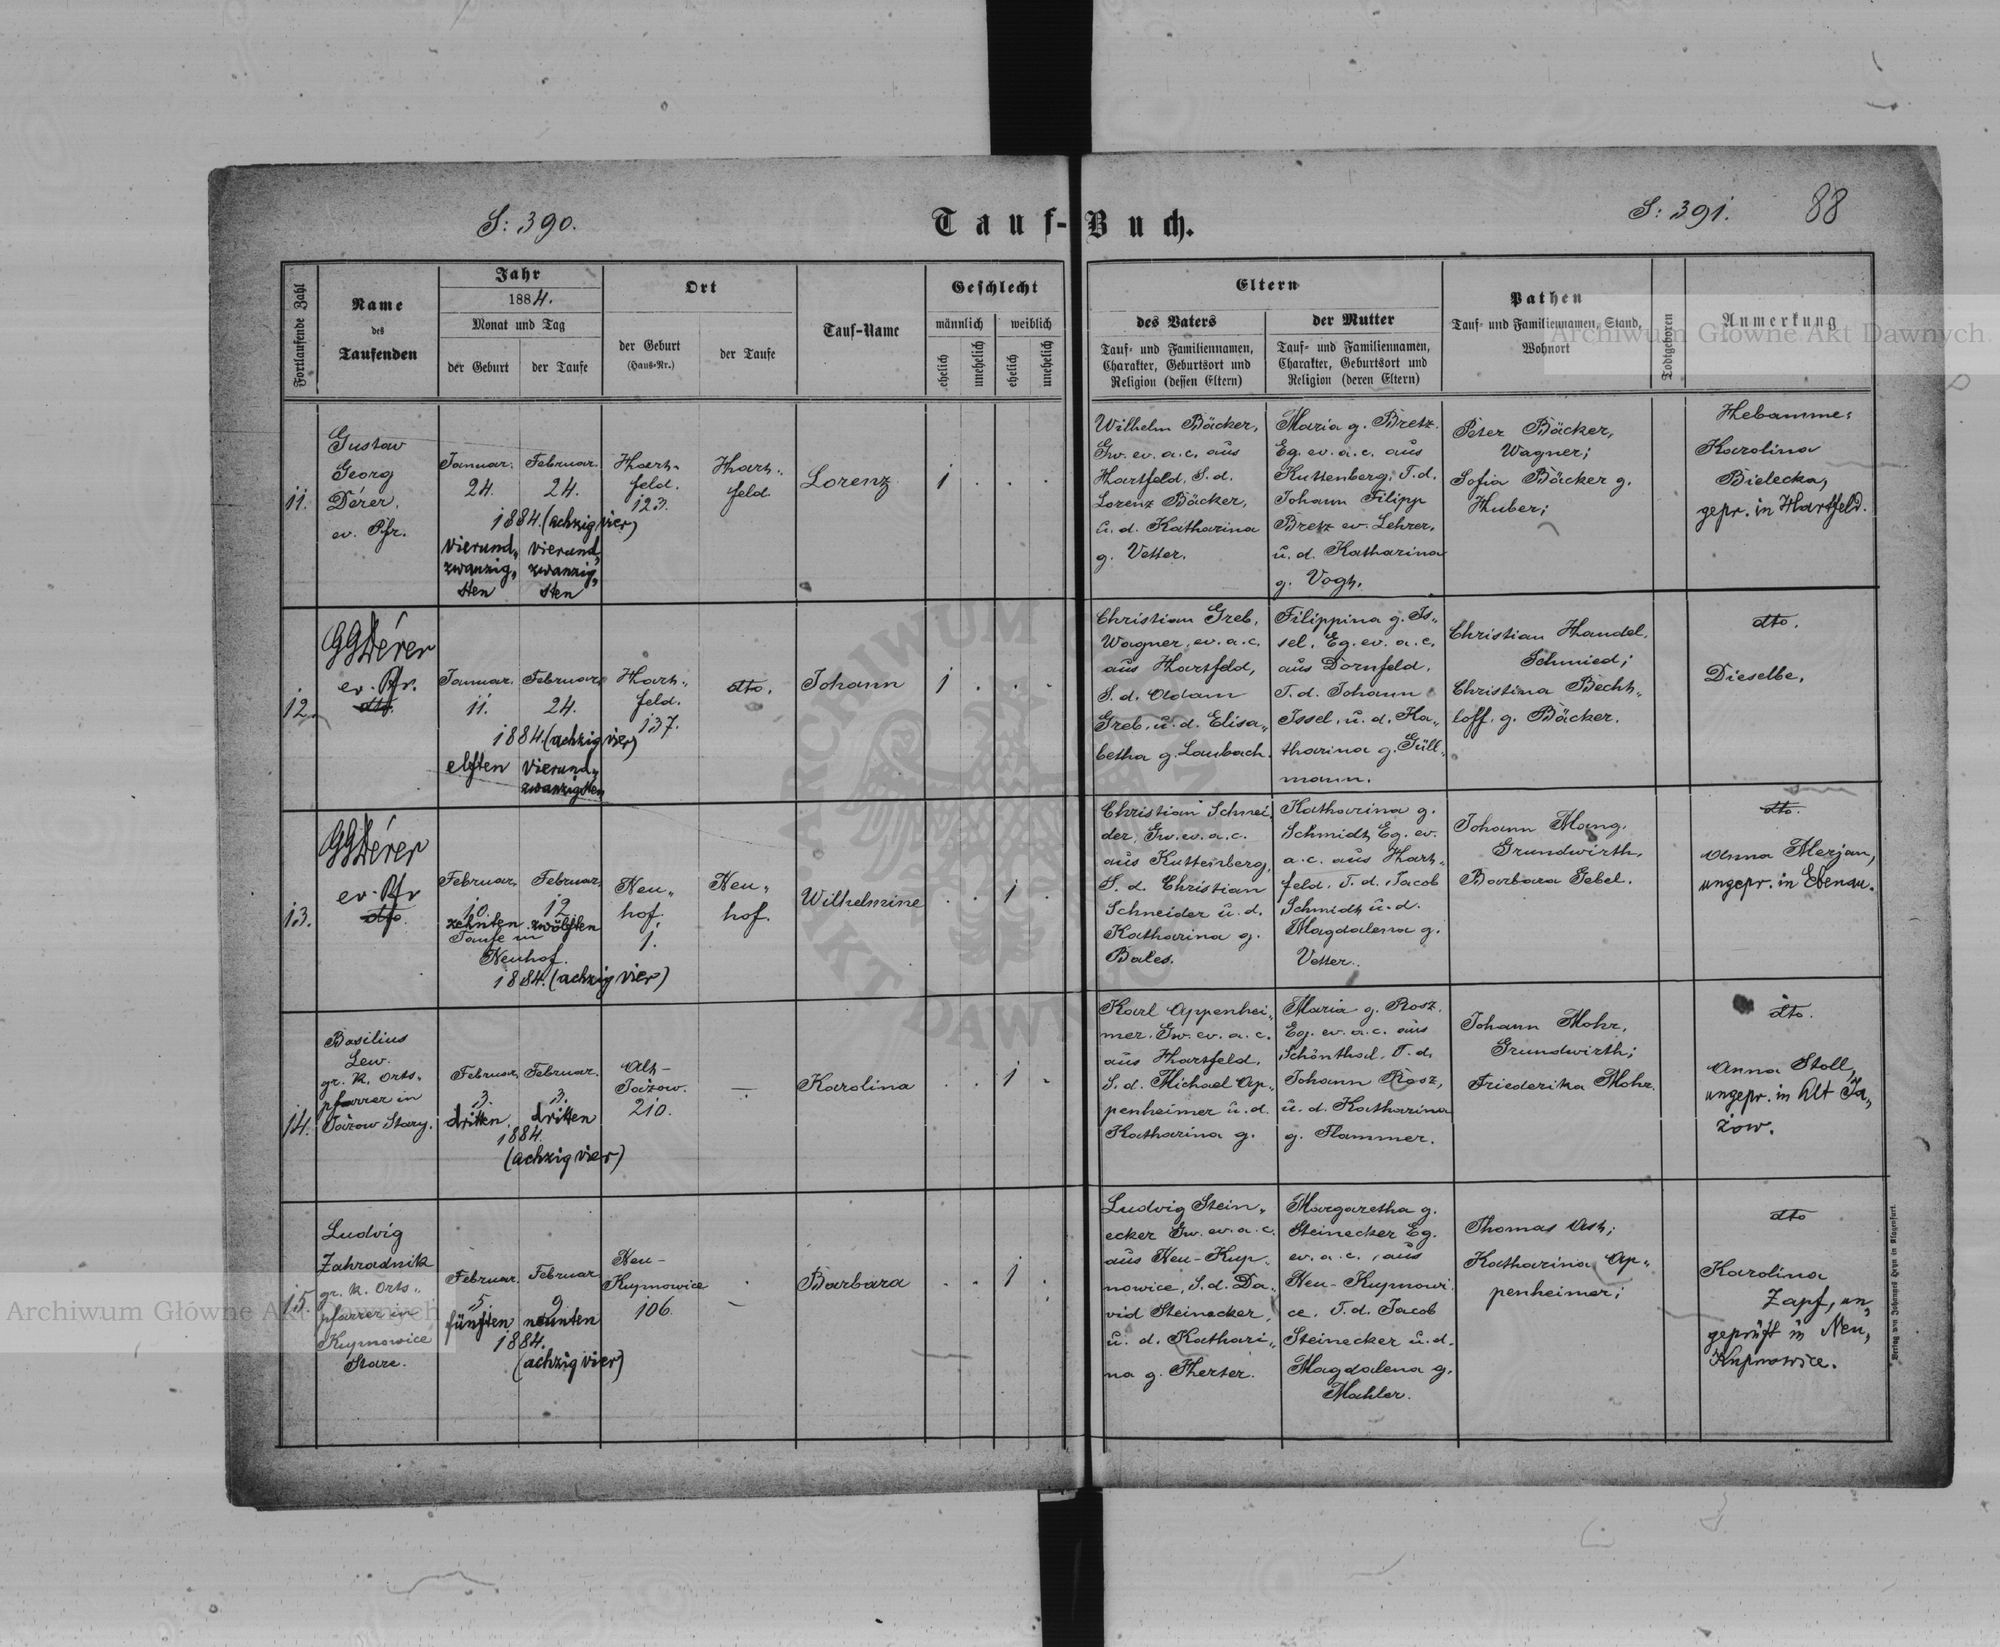 S: 390.
Tauf-Buch.
S: 391.
88
Fortlaufende Zahl
Name
des
Taufenden
Jahr
1884.
Monat und Tag
der Geburt
der Taufe
Ort
der Geburt
(Haus-Nr.)
der Taufe
Tauf-Name
Geschlecht
männlich
weiblich
ehelich
unehelich
ehelich
unehelich
Eltern
des Vaters
Tauf- und Familiennamen,
Charakter, Geburtsort und
Religion (dessen Eltern)
der Mutter
Tauf- und Familiennamen,
Charakter, Geburtsort und
Religion (deren Eltern)
Pathen
Tauf- und Familiennamen, Stand,
Wohnort
Todtgeboren
Anmerkung
11.
Gustav
Georg
Dérer,
ev. Pfr.
Januar.
24.
Februar.
24.
1884. (achzig vier)
vierund„
zwanzig„
sten
vierund„
zwanzig„
sten
Hart-
feld.
123.
Hart-
feld
Lorenz
1 . . .
Wilhelm Bäcker,
Gw. ev. a. c. aus
Hartfeld, S. d.
Lorenz Bäcker,
u. d. Katharina
g. Vetter.
Maria g. Bretz.
Eg. ev. a. c. aus
Kuttenberg, T. d.
Johann Filipp
Bretz ev. Lehrer,
u. d. Katharina
g. Vogt.
Peter Bäcker,
Wagner;
Sofia Bäcker g.
Huber;
Hebamme:
Karolina
Bielecka,
gepr. in Hartfeld.
12.
GGDérer
ev. Pfr.
dto.
Januar.
11.
Februar.
24.
1884. (achzig vier)
elften
vierund„
zwanzigsten
Hart„
feld.
137.
dto.
Johann
1 . . .
Christian Greb,
Wagner, ev. a. c.
aus Hartfeld,
S. d. Adam
Greb, u. d. Elisa„
betha g. Laubach.
Filippina g. Is„
sel, Eg. ev. a. c.
aus Dornfeld,
T. d. Johann
Issel, u. d. Ka„
tharina g. Güll„
mann.
Christian Handel,
Schmied;
Christina Becht„
loff. g. Bäcker.
dto.
Dieselbe.
13.
GGDérer
ev. Pfr
dto.
Februar.
10.
zehnten
Februar.
12
zwölften
Taufe in
Neuhof.
1884. (achzig vier)
Neu„
hof.
1.
Neu„
hof.
Wilhelmine
. . 1 .
Christian Schnei„
der, Gw. ev. a. c.
aus Kuttenberg,
S. d. Christian
Schneider u. d.
Katharina g.
Bales.
Katharina g.
Schmidt, Eg. ev.
a. c. aus Hart„
feld, T. d. Jacob
Schmidt u. d.
Magdalena g.
Vetter.
Johann Mang,
Grundwirth,
Barbara Gebel.
dto.
Anna Merjan,
ungepr. in Ebenau.
14.
Basilius
Lew.
gr. k. Orts„
pfarrer in
Jażow Stary.
Februar.
3.
dritten
Februar.
3.
dritten
1884.
(achzig vier)
Alt-
Jażow.
210.
—
Karolina
. . 1 .
Karl Appenhei„
mer, Gw. ev. a. c.
aus Hartfeld,
S. d. Michael Ap„
penheimer u. d.
Katharina g.
Maria g. Rosz,
Eg. ev. a. c. aus
Schönthal, T. d.
Johann Rosz,
u. d. Katharina
g. Flammer.
Johann Mohr,
Grundwirth;
Friederika Mohr.
dto.
Anna Stoll,
ungepr. in Alt Ja„
żow.
15.
Ludvig
Zahradnik
gr. k. Orts„
pfarrer in
Kupnowice
Stare.
Februar.
5.
fünften
Februar
9
neunten
1884.
(achzig vier)
Neu-
Kupnowice
106.
Barbara
. . 1 .
Ludvig Stein„
ecker Gw. ev. a. c.
aus Neu-Kup„
nowice, S. d. Da„
vid Steinecker,
u. d. Kathari„
na g. Herter.
Margaretha g.
Steinecker Eg.
ev. a. c., aus
Neu-Kupnowi
ce. T. d. Jacob
Steinecker u. d.
Magdalena g.
Mahler.
Thomas Ast;
Katharina Ap„
penheimer;
dto
Karolina
Zapf, un„
geprüft in Neu„
Kupnowice.
Verlag von Johannes Heyn in Klagenfurt.
Archiwum Główne Akt Dawnych
Archiwum Główne Akt Dawnych
ARCHIWUM
AKT DAWNYCH